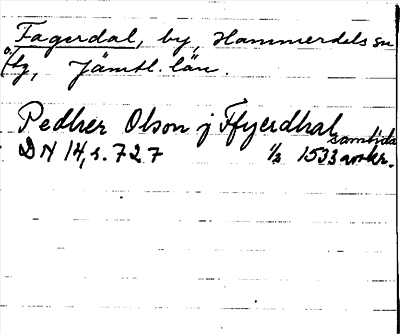 Fagerdal, by, Hammerdals sn
o. tg, Jämtl. län.
Pedher Olson j Ffyerdhal
DN 14, s. 727 1/3 1533 samtida avskr.